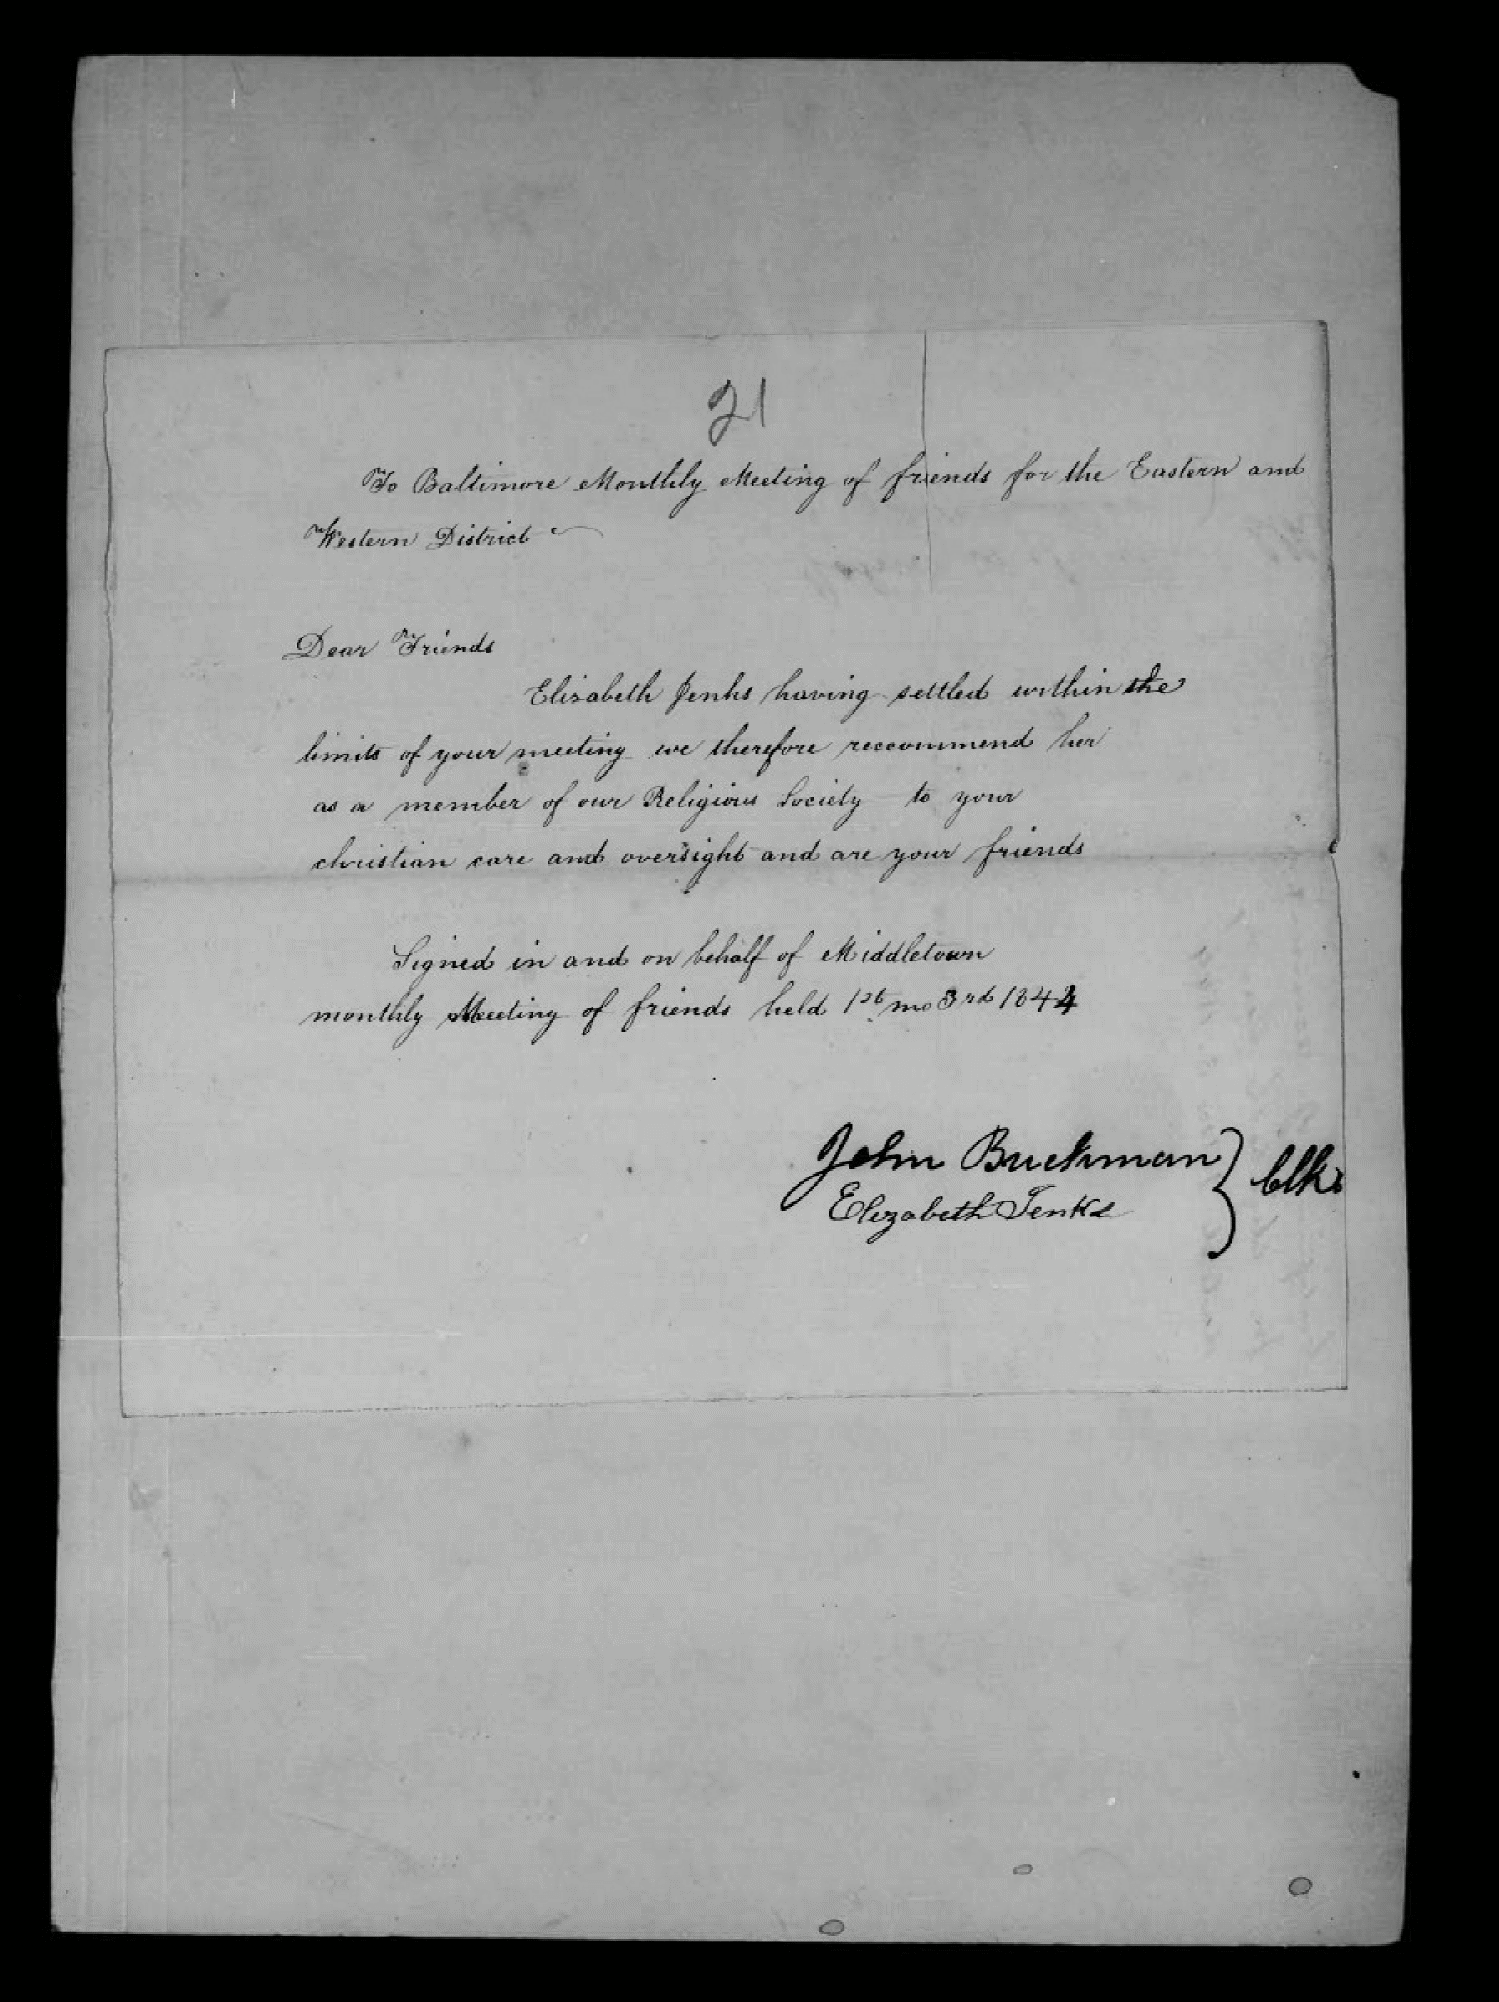 21
To Baltimore Monthly Meeting of friends for the Eastern and
Western District
Dear Friends
Elizabeth Jenks having settled within the
limits of your meeting we therefore reccommend her
as a member of our Religious Society to your
christian care and oversight and are your friends
Signed in and on behalf of Middletown
monthly Meeting of friends held 1st mo 3rd 1844
John Buckman } Clks
Elizabeth Jenks